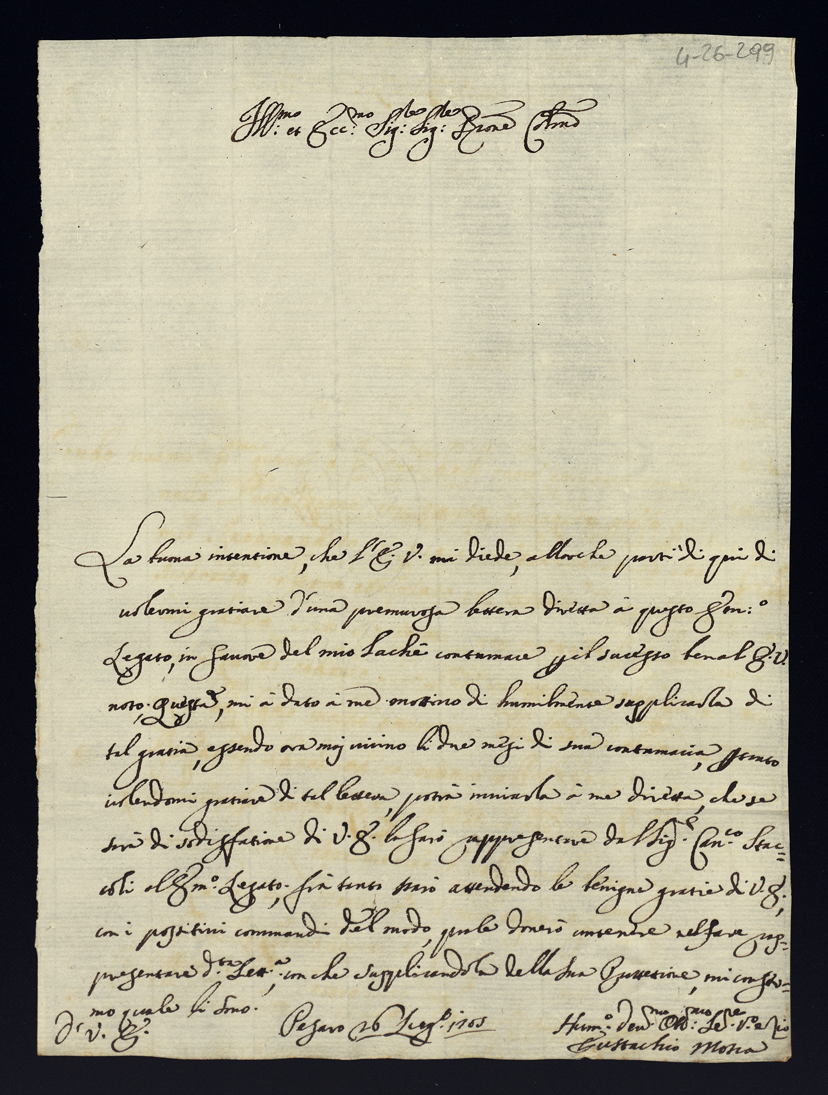 4-26-299
Ill:mo et Ecc:mo Sig:re Sig:re Prone Colmo
La buona intentione, che l'E. V. mi diede, allorche partì di qui di
volermi gratiare d'una premurosa lettera diretta à questo Em:o
Legato, in favore del mio Lachè contumace p il sucesso ben al E. V.
noto; Questa, mi à dato à me mottivo di humilmente supplicarla di
tal gratia, essendo ora mai vicino li due mesi di sua contumacia, p tanto
volendomi gratiare di tal lettera, potrà inviarla à me diretta, che se
sarà di sodisfatione di V. E. la farò rappresentare dal Sig.e Can.co Stac=
coli al Em.o Legato; frà tanto starò attendendo le benigne gratie di V. E.,
con i possitivi commandi del modo, quale doverò contenere nel fare rap=
presentare d.ta Lett.a, con che supplicandola della sua Prottetione, mi confer=
mo quale li sono.
Di V. E.
Pesaro 26 Lug.o 1703
Hum.o Dev.mo Obb:mo Se.re V.o e
Eustachio Mosca